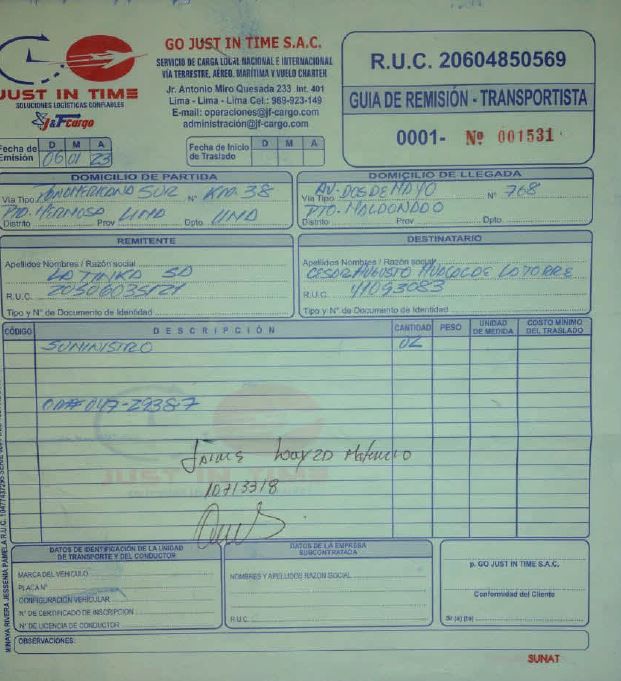 GO JUST IN TIME S.A.C.
SERVICIO DE CARGA LOCAL NACIONAL E INTERNACIONAL
VÍA TERRESTRE, AÉREO, MARÍTIMA Y VUELO CHARTER
Jr. Antonio Miro Quesada 233 Int. 401
Lima - Lima - Lima Cel.: 989-923-149
E-mail: operaciones@jf-cargo.com
administración@jf-cargo.com
JUST IN TIME
SOLUCIONES LOGÍSTICAS CONFIABLES
J&F cargo
R.U.C. 20604850569
GUIA DE REMISIÓN - TRANSPORTISTA
0001- Nº 001531
Fecha de Emisión D M A
06 01 23
Fecha de Inicio de Traslado D M A
DOMICILIO DE PARTIDA
Vía Tipo PANAMERICANA SUR Nº KM. 38
PTO. HERMOSA LIMA LIMA
Distrito Prov Dpto
DOMICILIO DE LLEGADA
Vía Tipo AV. DOS DE MAYO Nº 768
PTO. MALDONADO
Distrito Prov. Dpto.
REMITENTE
Apellidos Nombres / Razón social
LA TINKA SA
R.U.C. 20506035121
Tipo y N° de Documento de Identidad
DESTINATARIO
Apellidos Nombres / Razón social
CESAR AUGUSTO DE LA TORRE
R.U.C. 41093083
Tipo y N° de Documento de Identidad
CÓDIGO DESCRIPCIÓN CANTIDAD PESO UNIDAD DE MEDIDA COSTO MÍNIMO DEL TRASLADO
SUMINISTRO 02
047-29387
Jaime
10713318
JUST IN TIME
DATOS DE IDENTIFICACIÓN DE LA UNIDAD DE TRANSPORTE Y DEL CONDUCTOR
MARCA DEL VEHÍCULO
PLACA N°
CONFIGURACIÓN VEHICULAR
N° DE CERTIFICADO DE INSCRIPCIÓN
N° DE LICENCIA DE CONDUCTOR
DATOS DE LA EMPRESA SUBCONTRATADA
NOMBRES Y APELLIDOS RAZON SOCIAL
R.U.C.
p. GO JUST IN TIME S.A.C.
Conformidad del Cliente
Sr (a) (ta)
OBSERVACIONES:
SUNAT